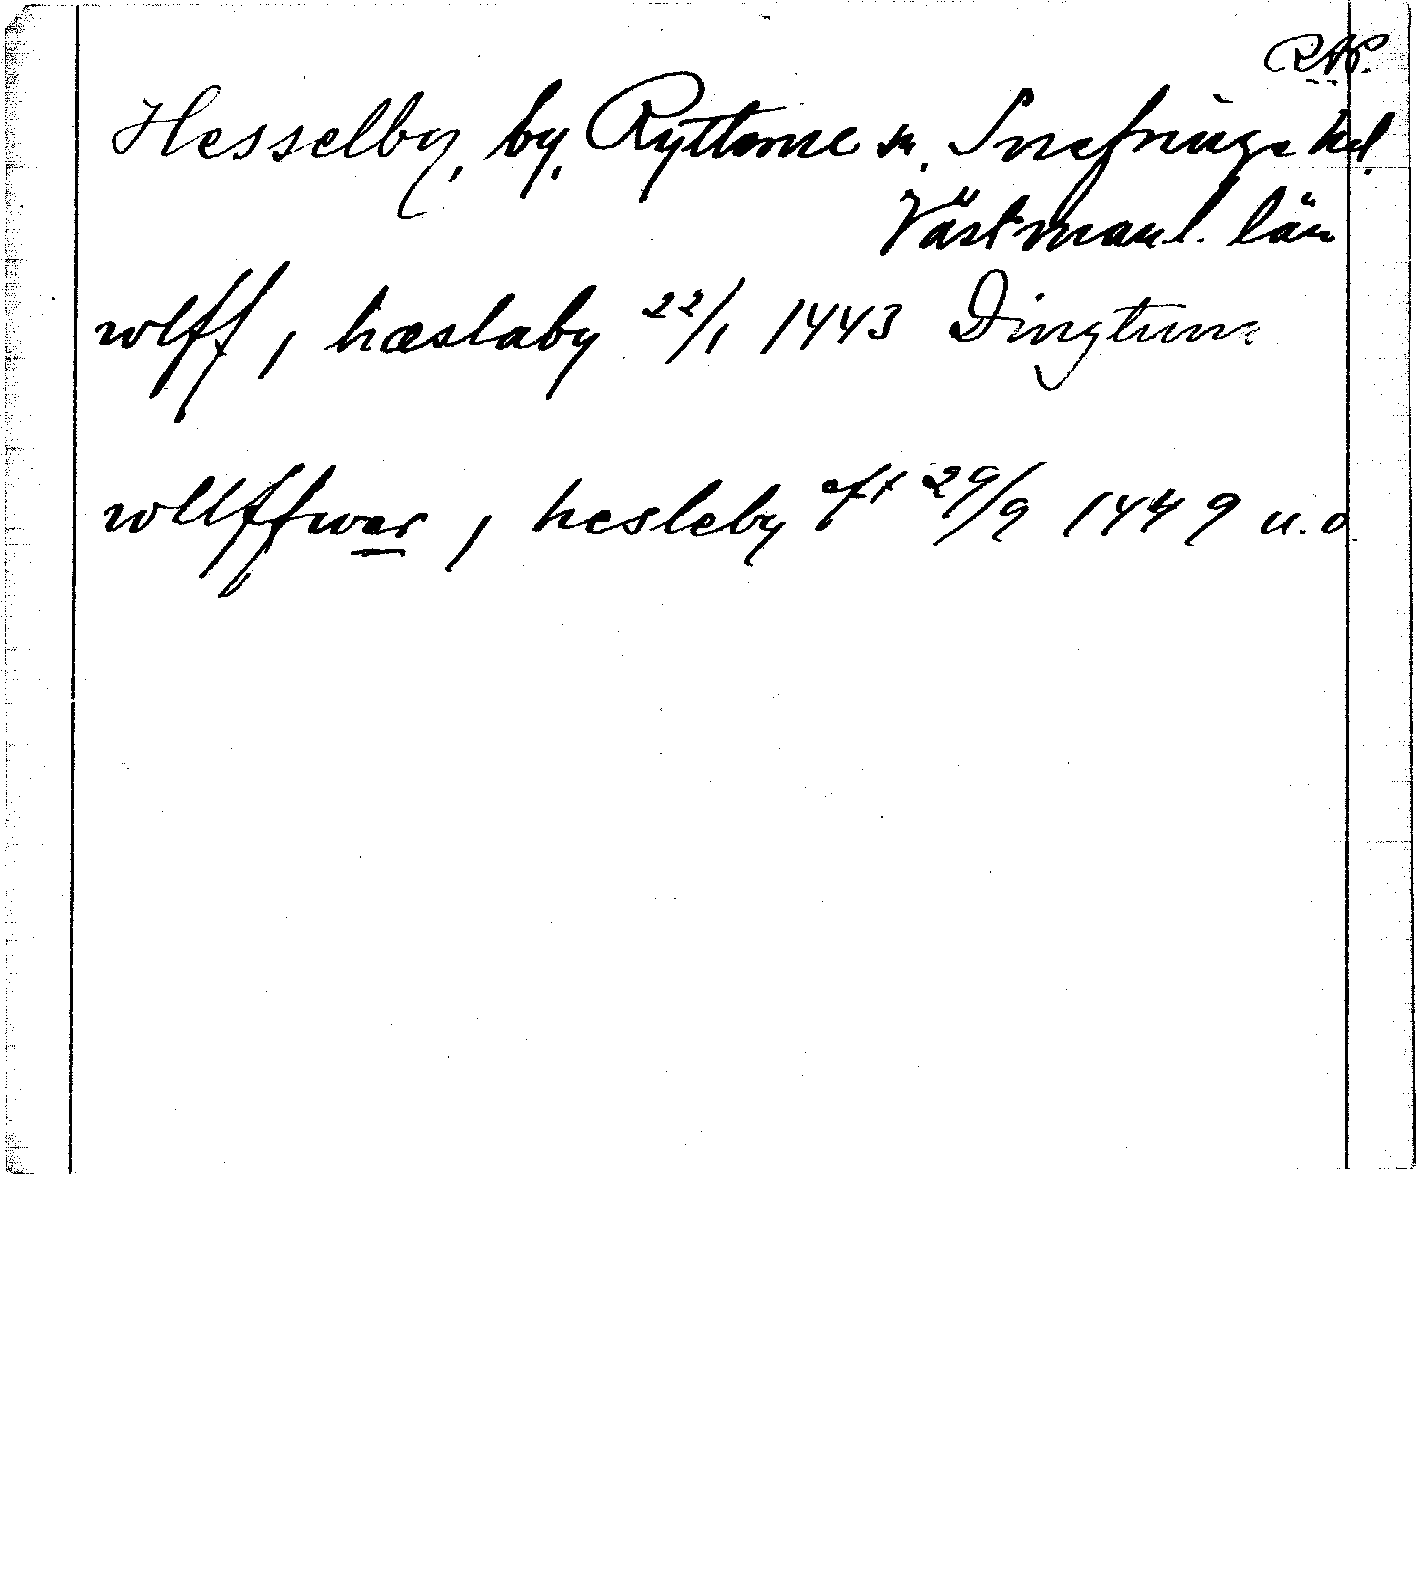 RAP.
Hesselby, by, Rytterne sn. Snefringe hd.
Västmanl. län
wlff, i hæslaby 22/1 1443 Dingtuna
wllffwer, i hesleby eft 29/9 1449 u.o.